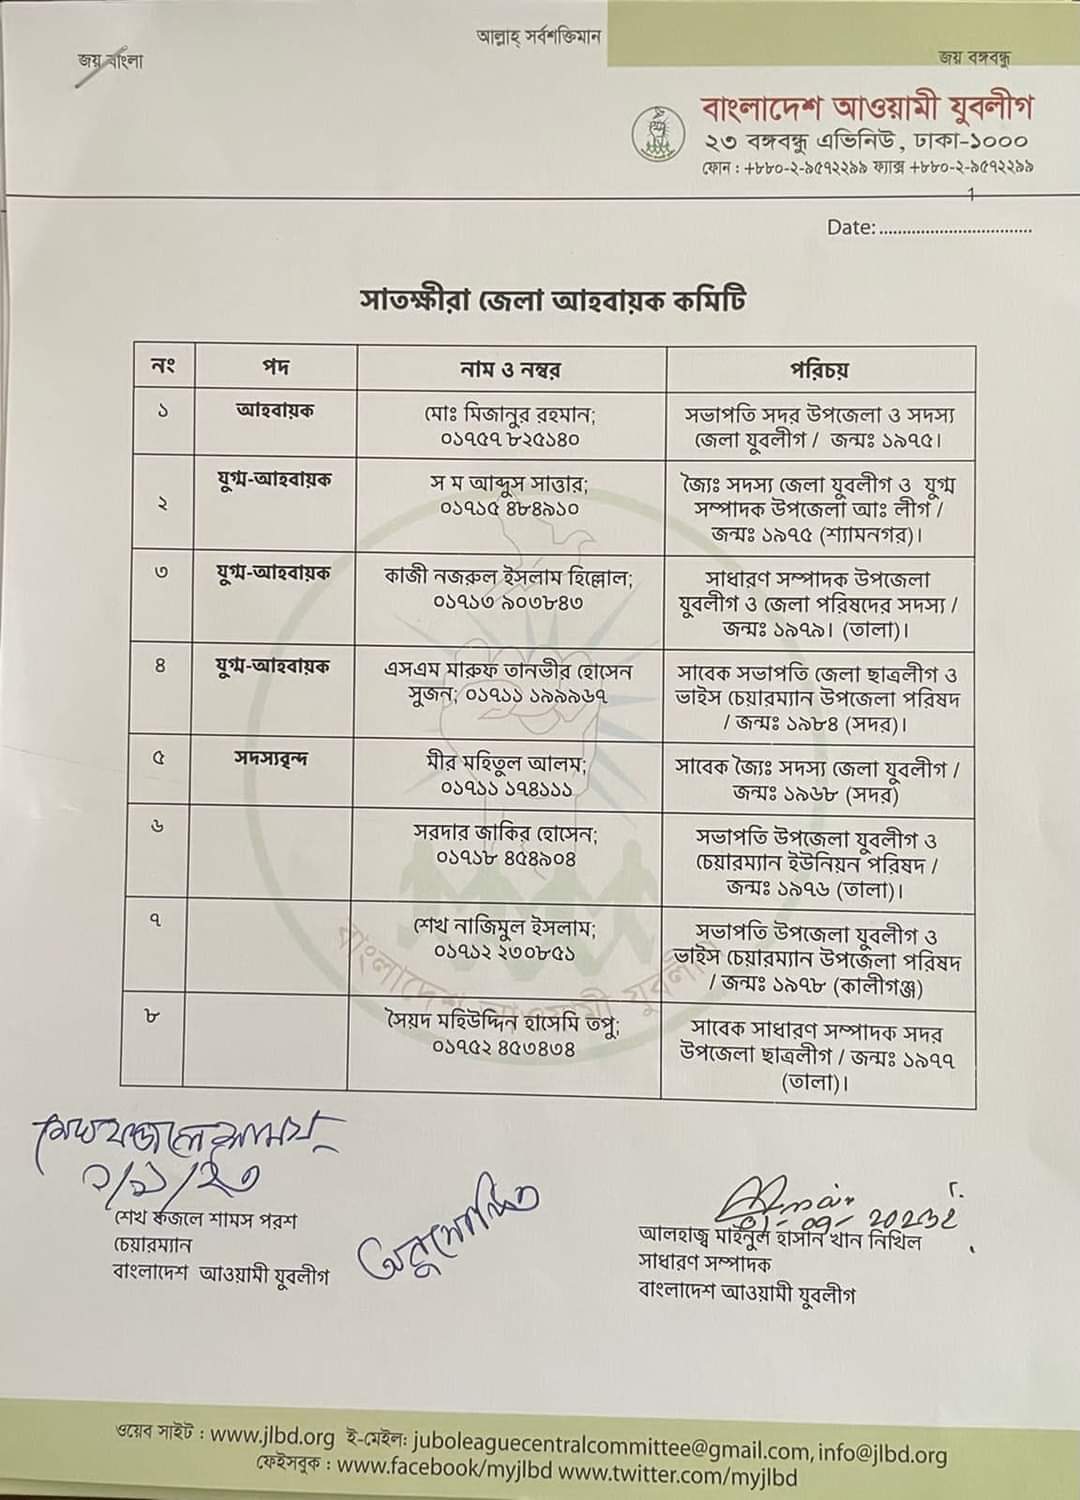 আল্লাহ্ সর্বশক্তিমান
জয় বাংলা
জয় বঙ্গবন্ধু
বাংলাদেশ আওয়ামী যুবলীগ
২৩ বঙ্গবন্ধু এভিনিউ, ঢাকা-১০০০
ফোন : +৮৮০-২-৯৫৭২২৯৯ ফ্যাক্স +৮৮০-২-৯৫৭২২৯৯
1
Date:................................
সাতক্ষীরা জেলা আহবায়ক কমিটি
নং পদ নাম ও নম্বর পরিচয়
১ আহবায়ক মোঃ মিজানুর রহমান; সভাপতি সদর উপজেলা ও সদস্য
০১৭৫৭ ৮২৫১৪০ জেলা যুবলীগ / জন্মঃ ১৯৭৫।
২ যুগ্ম-আহবায়ক স ম আব্দুস সাত্তার; জ্যৈঃ সদস্য জেলা যুবলীগ ও যুগ্ম
০১৭১৫ ৪৮৪৯১০ সম্পাদক উপজেলা আঃ লীগ /
জন্মঃ ১৯৭৫ (শ্যামনগর)।
৩ যুগ্ম-আহবায়ক কাজী নজরুল ইসলাম হিল্লোল; সাধারণ সম্পাদক উপজেলা
০১৭১৩ ৯০৩৮৪৩ যুবলীগ ও জেলা পরিষদের সদস্য /
জন্মঃ ১৯৭৯। (তালা)।
৪ যুগ্ম-আহবায়ক এসএম মারুফ তানভীর হোসেন সাবেক সভাপতি জেলা ছাত্রলীগ ও
সুজন; ০১৭১১ ১৯৯৯৬৭ ভাইস চেয়ারম্যান উপজেলা পরিষদ
/ জন্মঃ ১৯৮৪ (সদর)।
৫ সদস্যবৃন্দ মীর মহিতুল আলম; সাবেক জ্যৈঃ সদস্য জেলা যুবলীগ /
০১৭১১ ১৭৪১১১ জন্মঃ ১৯৬৮ (সদর)
৬ সরদার জাকির হোসেন; সভাপতি উপজেলা যুবলীগ ও
০১৭১৮ ৪৫৪৯০৪ চেয়ারম্যান ইউনিয়ন পরিষদ /
জন্মঃ ১৯৭৬ (তালা)।
৭ শেখ নাজিমুল ইসলাম; সভাপতি উপজেলা যুবলীগ ও
০১৭১২ ২৩০৮৫১ ভাইস চেয়ারম্যান উপজেলা পরিষদ
/ জন্মঃ ১৯৭৮ (কালীগঞ্জ)
৮ সৈয়দ মহিউদ্দিন হাসেমি তপু; সাবেক সাধারণ সম্পাদক সদর
০১৭৫২ ৪৫৩৪৩৪ উপজেলা ছাত্রলীগ / জন্মঃ ১৯৭৭
(তালা)।
বাংলাদেশ আওয়ামী যুবলীগ
অনুমোদিত
শেখ ফজলে শামস পরশ
চেয়ারম্যান
বাংলাদেশ আওয়ামী যুবলীগ
আলহাজ্ব মাইনুল হাসান খান নিখিল
সাধারণ সম্পাদক
বাংলাদেশ আওয়ামী যুবলীগ
ওয়েব সাইট : www.jlbd.org ই-মেইল: juboleaguecentralcommittee@gmail.com, info@jlbd.org
ফেইসবুক : www.facebook/myjlbd www.twitter.com/myjlbd